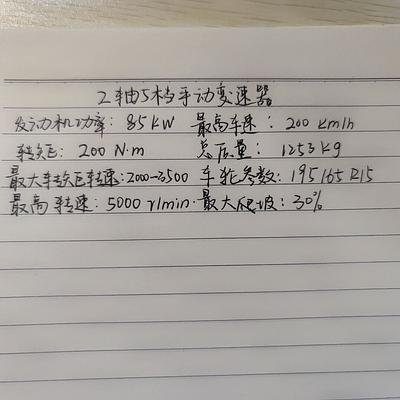 2轴5档手动变速器
发动机功率：85kW 最高车速：200km/h
转矩：200N·m 总质量：1253kg
最大转矩转速：2000-3500 车轮参数：195/65R15
最高转速：5000r/min. 最大爬坡：30%